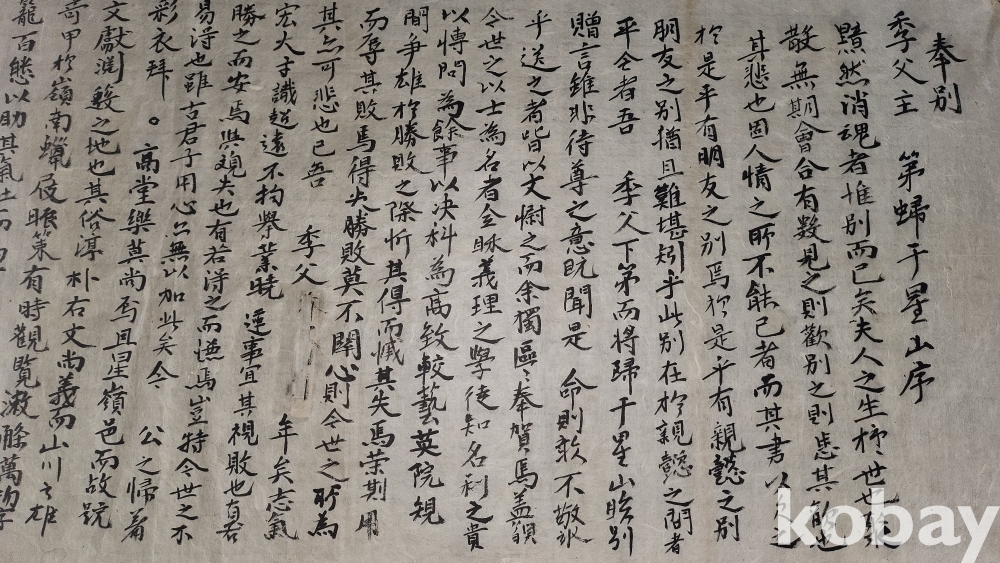 奉別
季父主 第歸于星山序
黯然消魂者惟別而已矣夫人之生於世也聚
散無期會合有數見之則歡別之則悲其
其悲也固人情之所不能已者而其書以
於是乎有朋友之別焉於是乎有親懿之別
朋友之別猶且難堪矧乎此別在於親懿之間者
乎余者吾 季父下第而將歸于星山臨別
贈言雖非待尊之意旣聞是 命則敢不敬
乎送之者皆以丈慰之而余獨區〻奉賀焉盖
今世之以士爲名者全昧義理之學徒知名利之貴
以博問爲餘事以决科爲高致較藝英院
間爭雄於勝敗之際忻其得而慽其失焉榮則
而辱其敗焉得失勝敗莫不關心則今世之所爲
其亦可悲也已吾 季父 年矣志氣
宏大才識超遠不拘擧業曉達事宜其視敗也若
勝之而安焉與覬失也有若得之而謙焉豈特今世之不
易得也雖古君子用心亦無以加此矣今 公之歸着
彩衣拜。高堂樂莫尙焉且星嶺邑而故
文獻淵藪之地也其俗淳朴右文尙義而山川之雄
奇甲於嶺南蠟屐 策有時觀覽滌萬
籠百態以助其氣
kobay